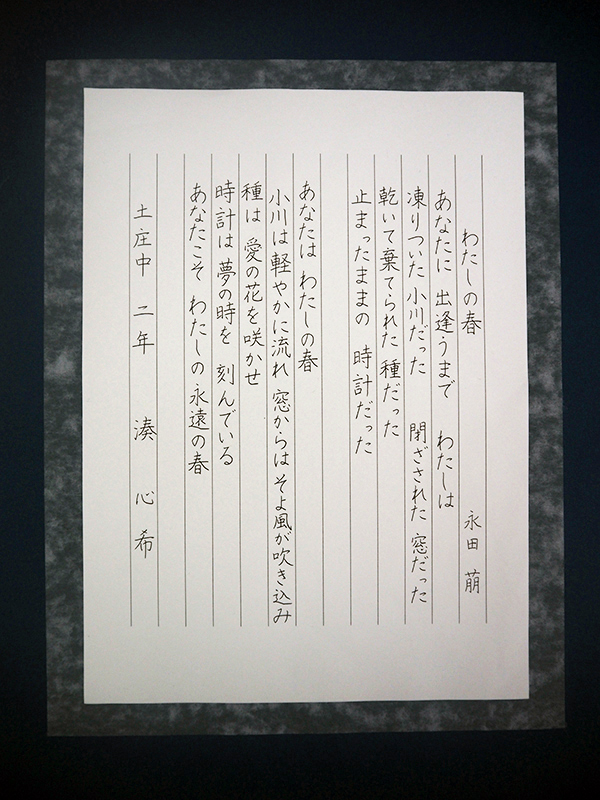 わたしの春　永田　萠
あなたに　出逢うまで　わたしは
凍りついた　小川だった　閉ざされた　窓だった
乾いて棄てられた　種だった
止まったままの　時計だった
あなたは　わたしの春
小川は　軽やかに流れ　窓からは　そよ風が吹き込み
種は　愛の花を　咲かせ
時計は　夢の時を　刻んでいる
あなたこそ　わたしの永遠の春
土庄中　二年　湊　心希